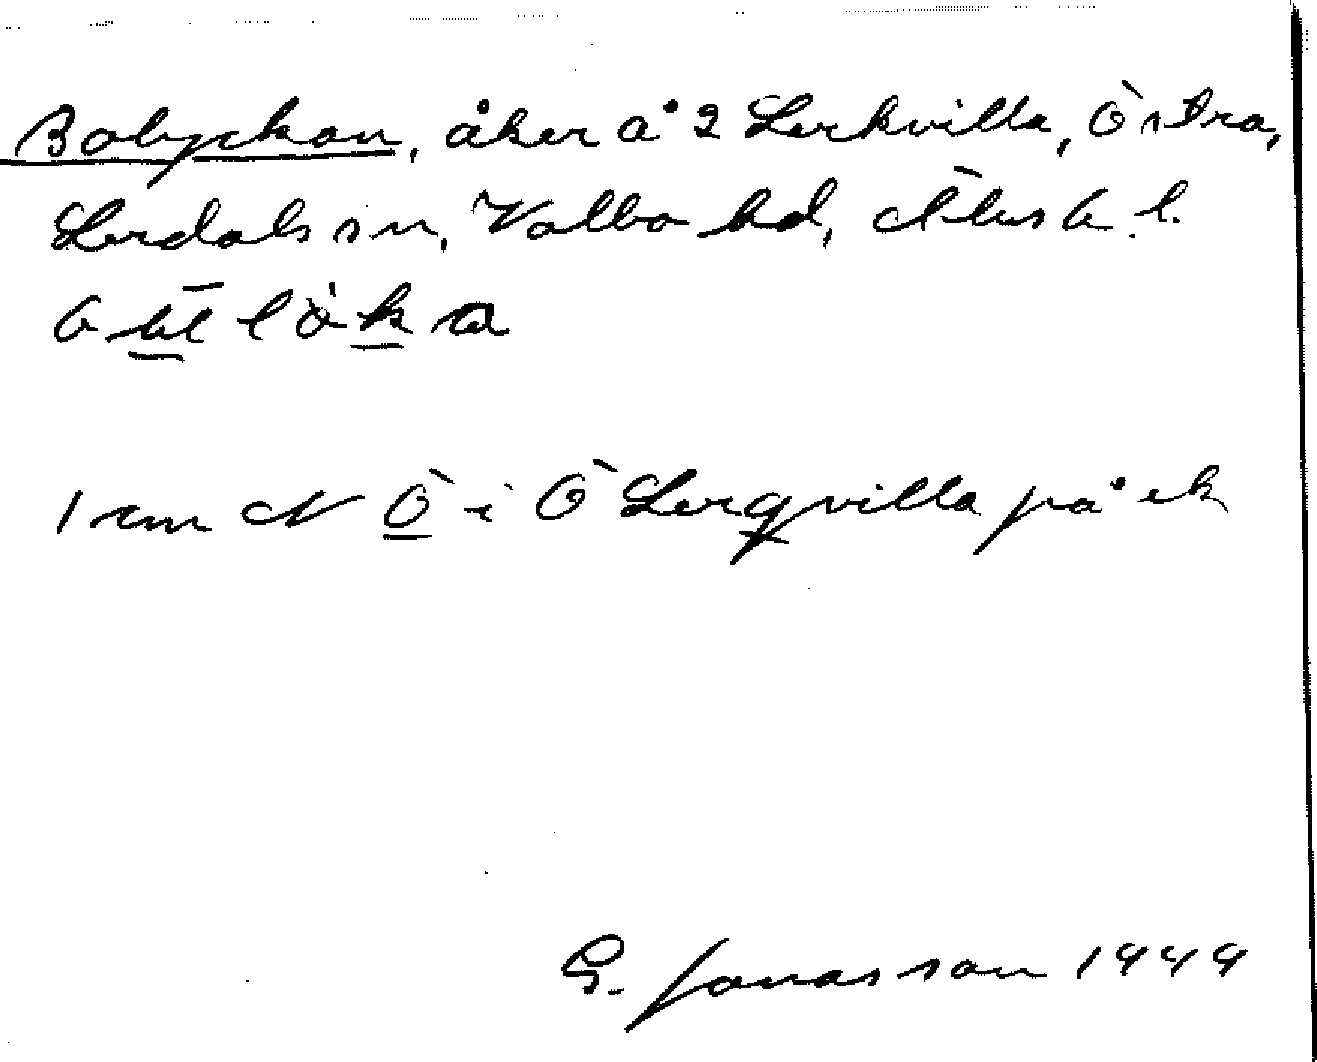 Bolyckan, åker å 2 Lerkvilla, Östra,
Lerdals sn, Valbo hd, Älvsb. l.
1 cm N Ö i Ö Lerqvilla på ek
G. Jonasson 1949